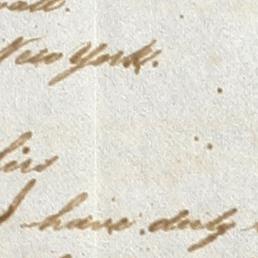 New York.
Sirs
I have duly